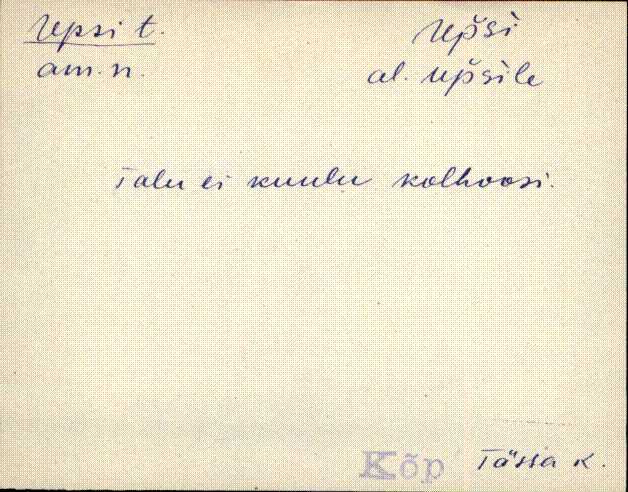 Upsi t.
am. n.
up̆si
al. up̆sile
Talu ei kuulu kolhoosi.
Kõp Tässa k.